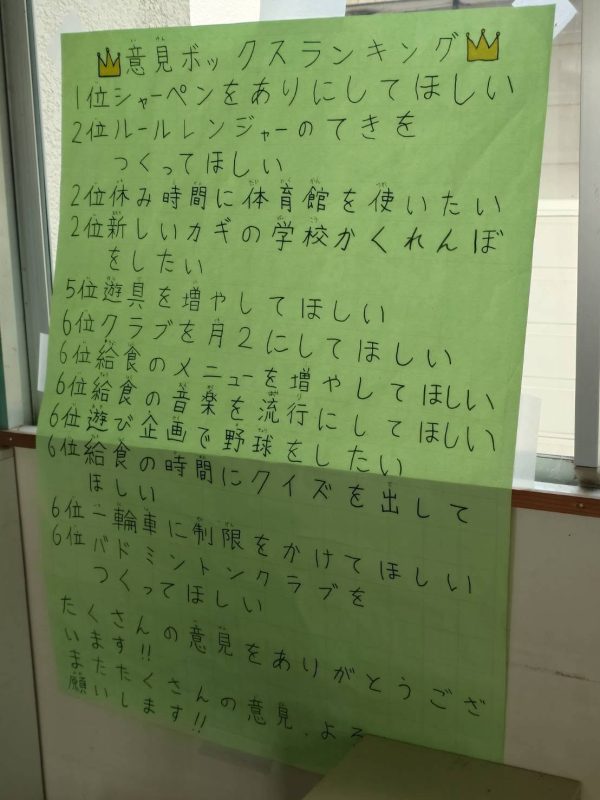 意見ボックスランキング
1位シャーペンをありにしてほしい
2位ルールレンジャーのてきを
つくってほしい
2位休み時間に体育館を使いたい
2位新しいカギの学校かくれんぼ
をしたい
5位遊具を増やしてほしい
6位クラブを月2にしてほしい
6位給食のメニューを増やしてほしい
6位給食の音楽を流行にしてほしい
6位遊び企画で野球をしたい
6位給食の時間にクイズを出して
ほしい
6位一輪車に制限をかけてほしい
6位バドミントンクラブを
つくってほしい
たくさんの意見をありがとうござ
います!!
またたくさんの意見、よろ
願いします!!